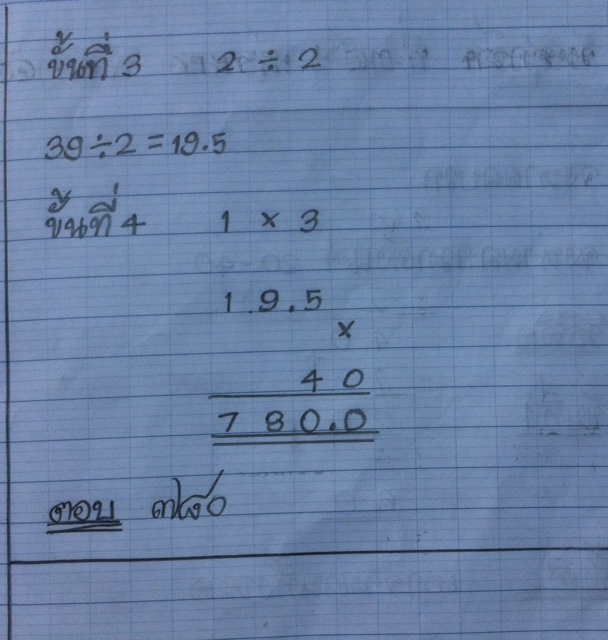 ขั้นที่ 3 2 ÷ 2
39 ÷ 2 = 19.5
ขั้นที่ 4 1 × 3
19.5
×
40
780.0
ตอบ ๗๘๐